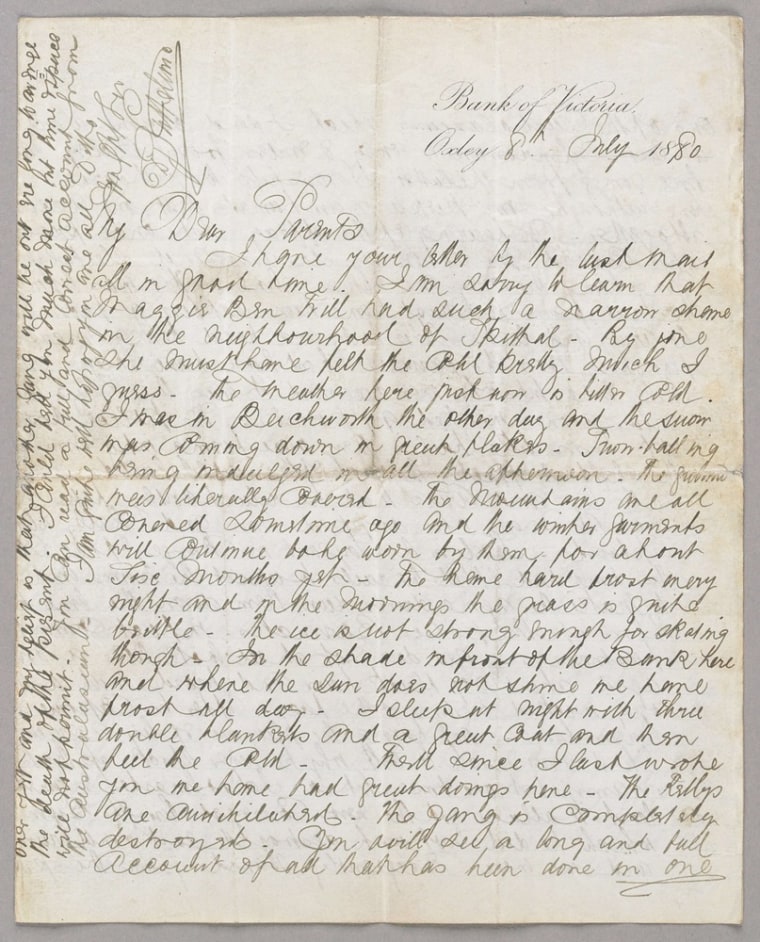 Bank of Victoria
Oxley 8th July 1880
My Dear Parents
I have your letter by the last mail
all in good time. I am sorry to learn that
Maggie Bon Will had such a narrow shave
in the neighbourhood of Spittal - By jove
she must have felt the cold pretty much I
guess. The weather here just now is bitter cold.
I was in Beechworth the other day and the snow
was coming down in great flakes - Snow-balling
being indulged in all the afternoon - the ground
was literally covered - The mountains are all
covered sometime ago and the winter garments
will continue to be worn by them for about
Six months yet - We have hard frost every
night and in the mornings the grass is quite
brittle - The ice is not strong enough for skating
though - In the shade in front of the Bank here
and where the sun does not shine we have
frost all day - I sleep at night with three
double blankets and a great coat and then
feel the cold - Well since I last wrote
you we have had great doings here - The Kellys
are annihilated - The gang is completely
destroyed - You will see a long and full
account of all that has been done in one
over it and my fear is that another gang will be out ere long to avenge
the death of the present. I could tell you much more but time & space
will not permit - You can read a full and correct account from
the Australasian. I am quite well hope you are all ditto
Sutherland